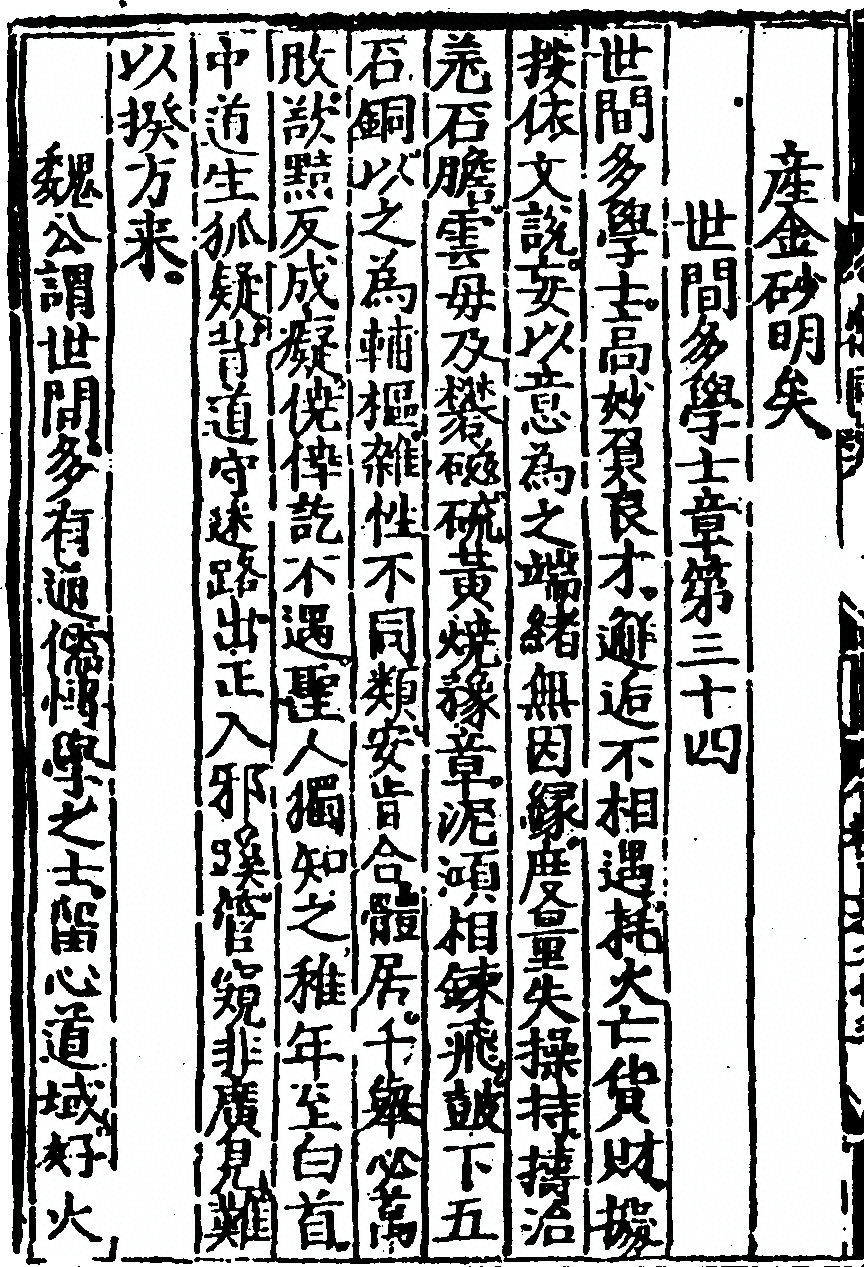 産金砂明矣
世間多學士章第三十四
世間多學士高妙負良才邂逅不相遇耗火亡貨財據
按依文說妄以意為之端緒無因縁度量失操持擣治
羗石膽雲毋及礬磁硫黃燒豫章泥澒相鍊飛皷下五
石銅以之為輔樞雜性不同類安肯合體居千舉必萬
敗欲黠反成癡僥倖訖不遇聖人獨知之稚年至白首
中道生狐疑背道守迷路出正入邪蹊管窺非廣見難
以揆方来
魏公謂世間多有通儒愽學之士留心道域好火